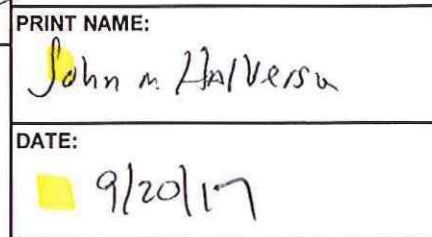 PRINT NAME:
John M. Halverson
DATE:
9/20/17